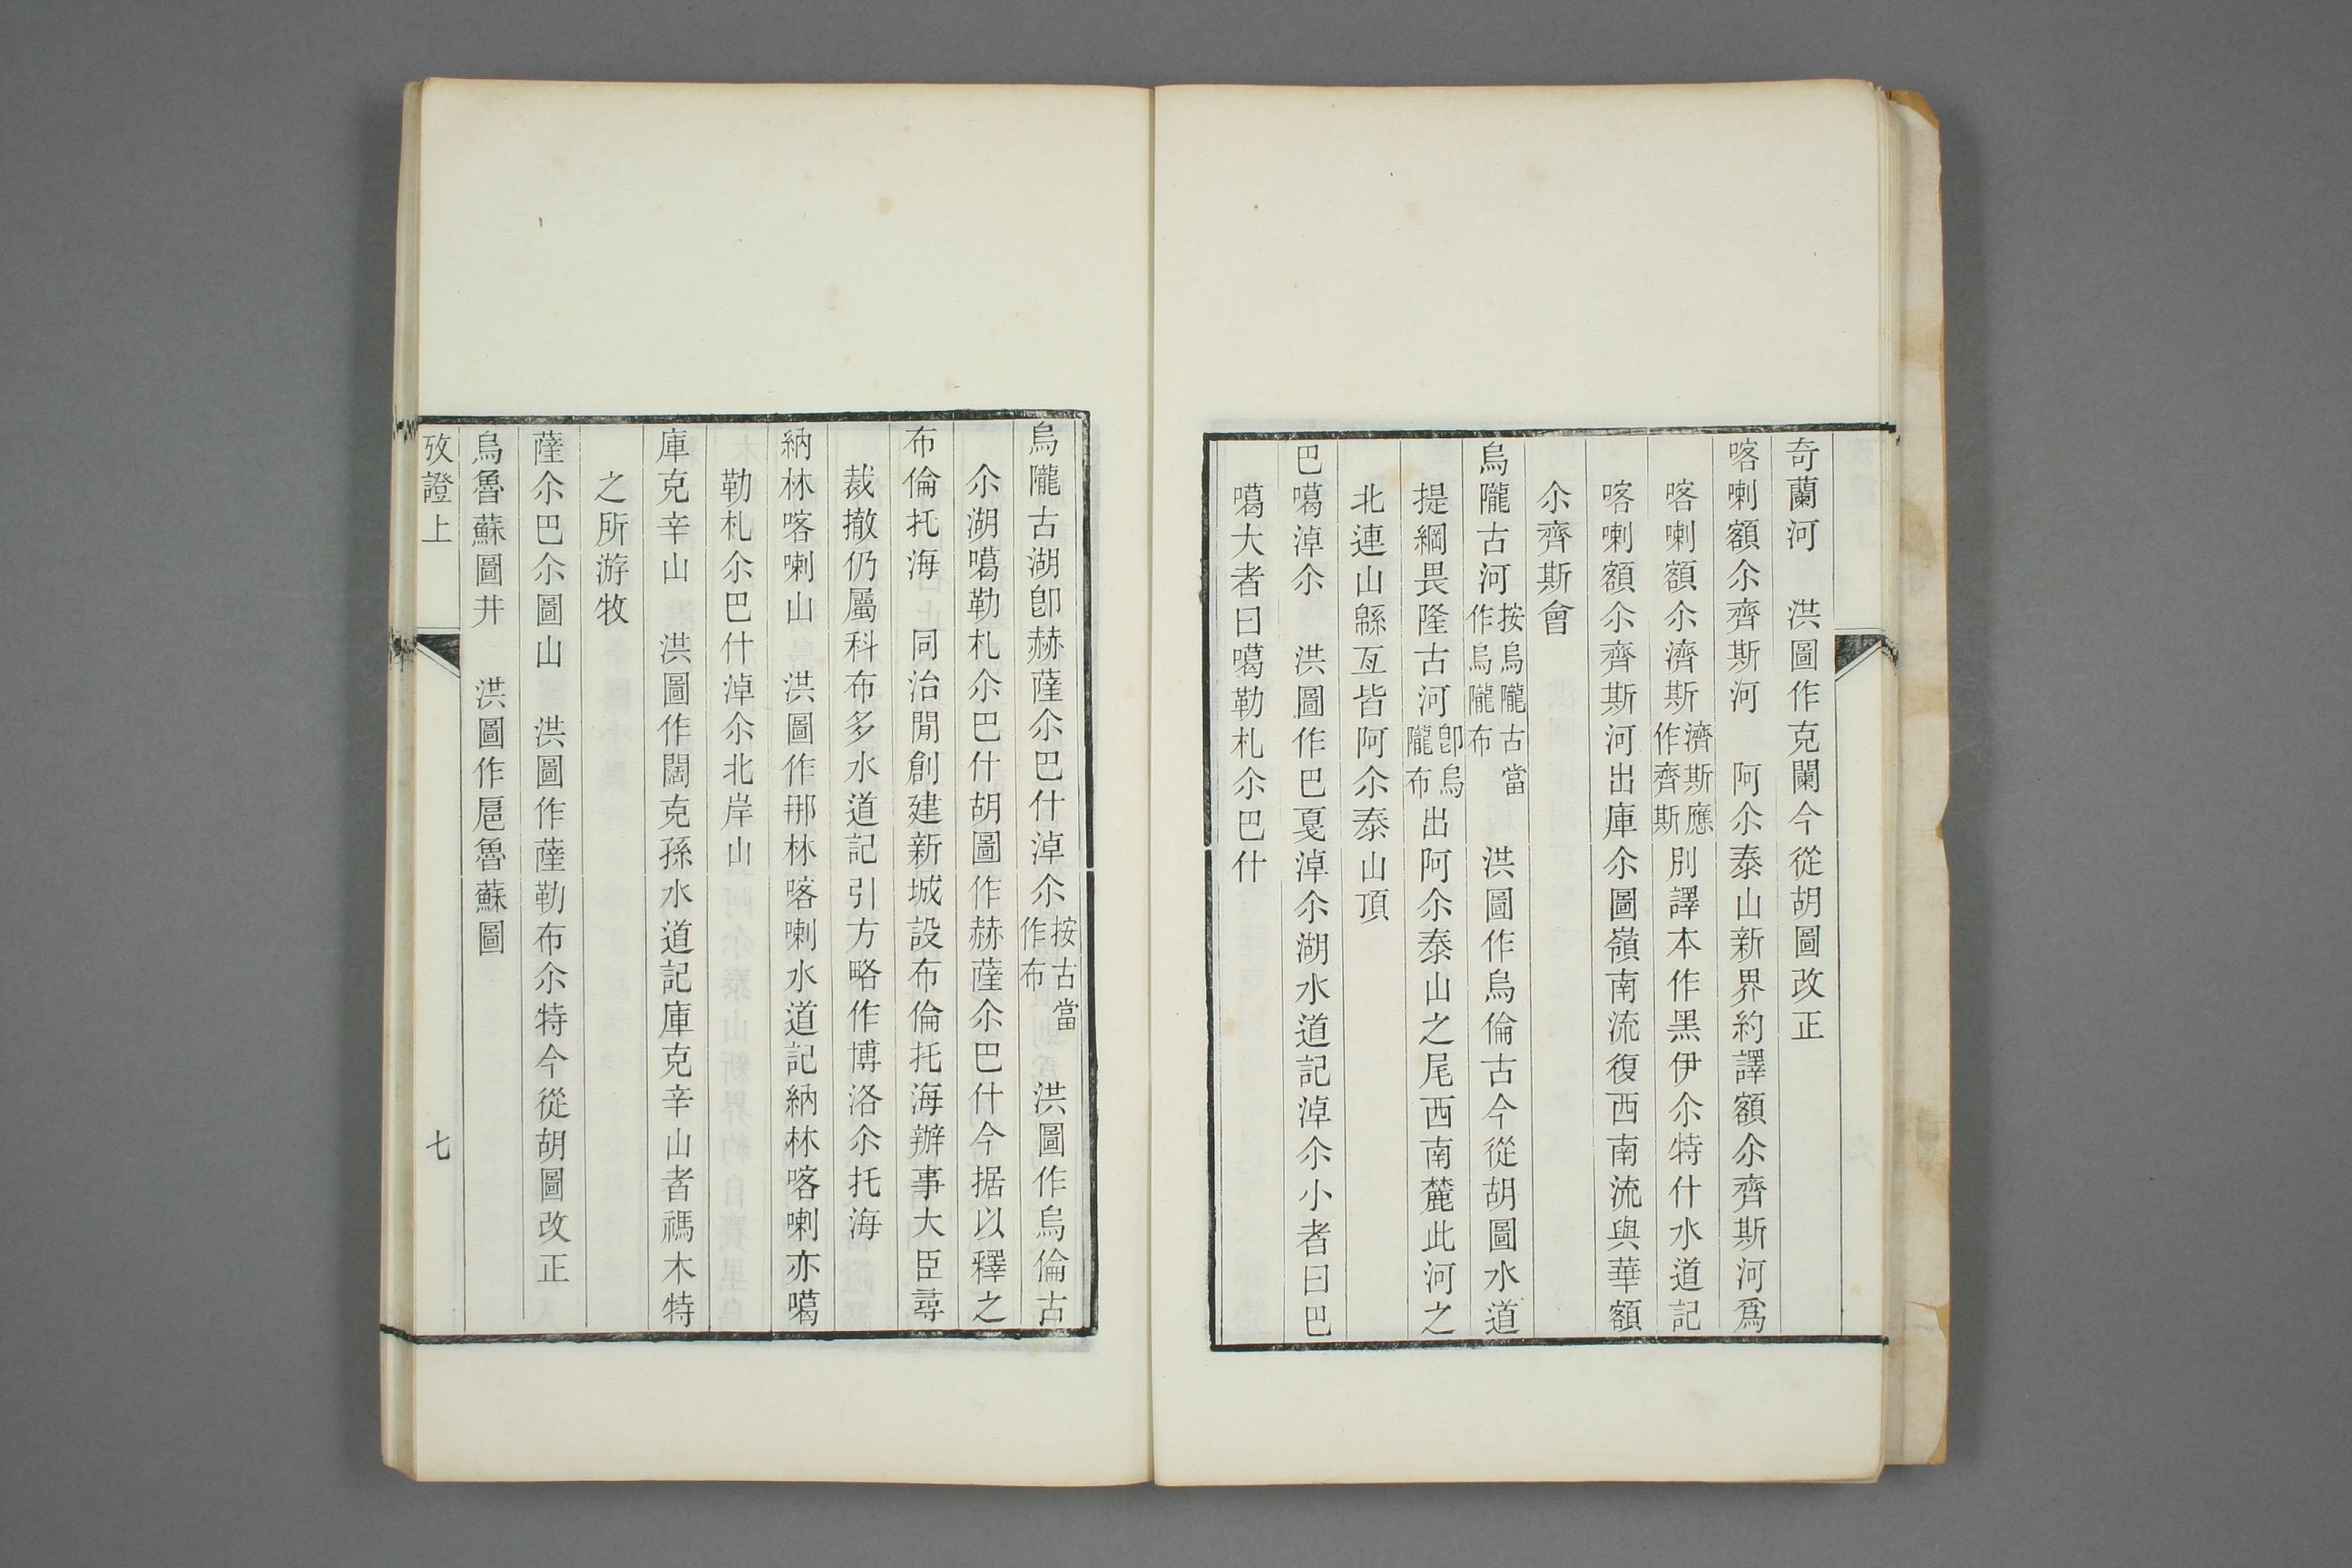 奇蘭河　洪圖作克闌今從胡圖改正
喀喇額尒齊斯河　阿尒泰山新界約譯額尒齊斯河爲
喀喇額尒濟斯濟斯應作齊斯別譯本作黑伊尒特什水道記
喀喇額尒齊斯河出庫尒圖嶺南流復西南流與華額
尒齊斯會
烏隴古河按烏隴古當作烏隴布　洪圖作烏倫古今從胡圖水道
提綱畏隆古河卽烏隴布出阿尒泰山之尾西南麓此河之
北連山緜亙皆阿尒泰山頂
巴噶淖尒　洪圖作巴戛淖尒湖水道記淖尒小者曰巴
噶大者曰噶勒札尒巴什
烏隴古湖卽赫薩尒巴什淖尒按古當作布　洪圖作烏倫古
尒湖噶勒札尒巴什胡圖作赫薩尒巴什今据以釋之
布倫托海　同治閒創建新城設布倫托海辦事大臣尋
裁撤仍屬科布多水道記引方略作博洛尒托海
納林喀喇山　洪圖作𨙻林喀喇水道記納林喀喇亦噶
勒札尒巴什淖尒北岸山
庫克辛山　洪圖作闊克孫水道記庫克辛山者禡木特
之所游牧
薩尒巴尒圖山　洪圖作薩勒布尒特今從胡圖改正
烏魯蘇圖井　洪圖作扈魯蘇圖
攷證上　七